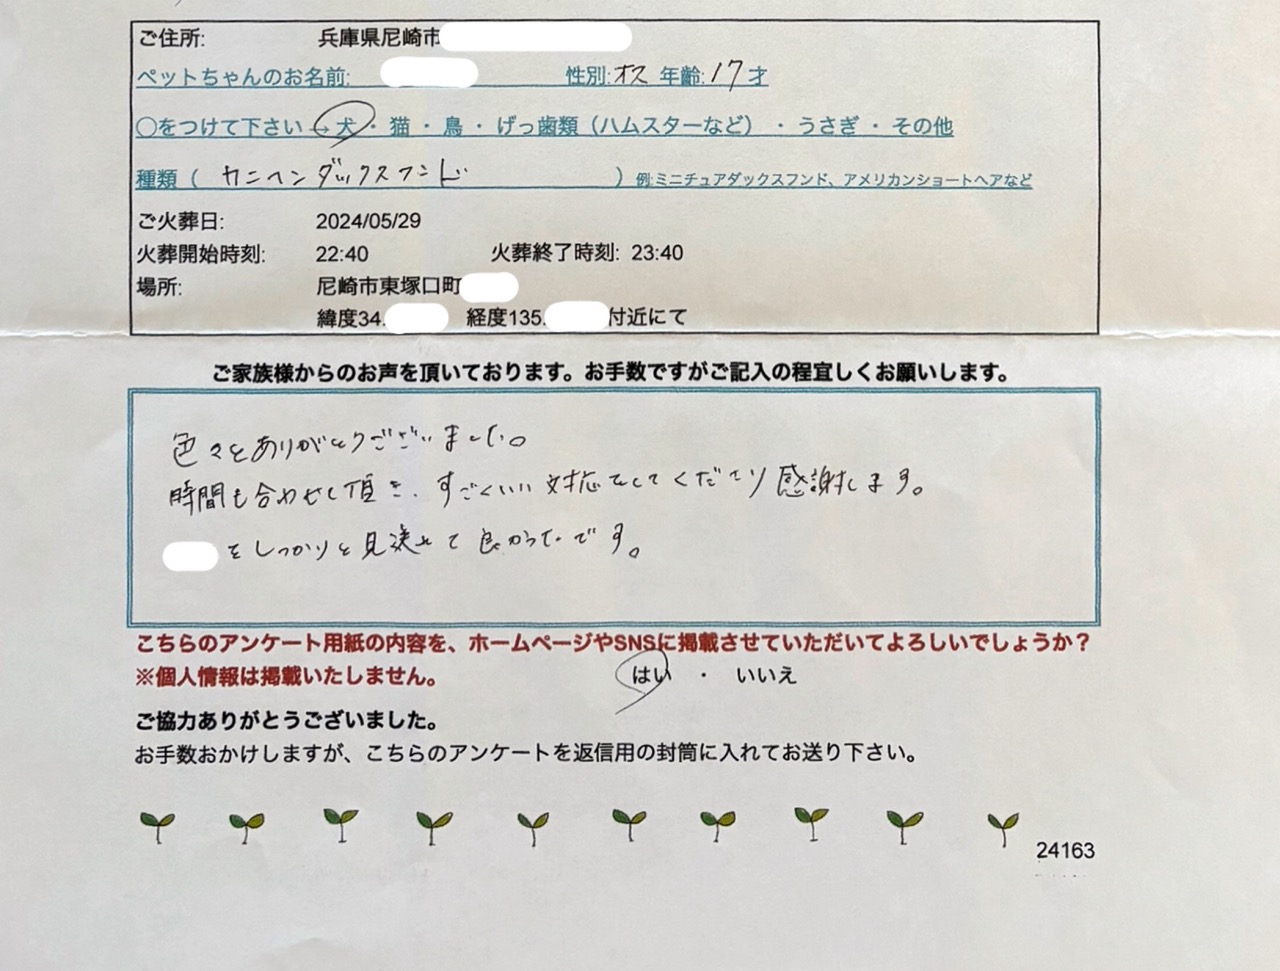 ご住所: 兵庫県尼崎市
ペットちゃんのお名前: 性別:オス 年齢:17才
〇をつけて下さい→犬・猫・鳥・げっ歯類（ハムスターなど）・うさぎ・その他
種類（ カニヘンダックスフンド ）例:ミニチュアダックスフンド、アメリカンショートヘアなど
ご火葬日: 2024/05/29
火葬開始時刻: 22:40 火葬終了時刻: 23:40
場所: 尼崎市東塚口町
緯度34. 経度135. 付近にて
ご家族様からのお声を頂いております。お手数ですがご記入の程宜しくお願いします。
色々とありがとうございました。
時間も合わせて頂き、すごくいい対応をしてくださり感謝します。
をしっかりと見送れて良かったです。
こちらのアンケート用紙の内容を、ホームページやSNSに掲載させていただいてよろしいでしょうか？
※個人情報は掲載いたしません。 はい ・ いいえ
ご協力ありがとうございました。
お手数おかけしますが、こちらのアンケートを返信用の封筒に入れてお送り下さい。
24163